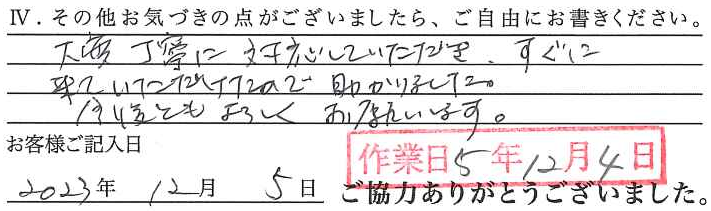 Ⅳ．その他お気づきの点がございましたら、ご自由にお書きください。
大変丁寧に対応していただき、すぐに
来ていただけたので助かりました。
今後ともよろしくお願いします。
お客様ご記入日
作業日5年12月4日
2023年 12月 5日 ご協力ありがとうございました。